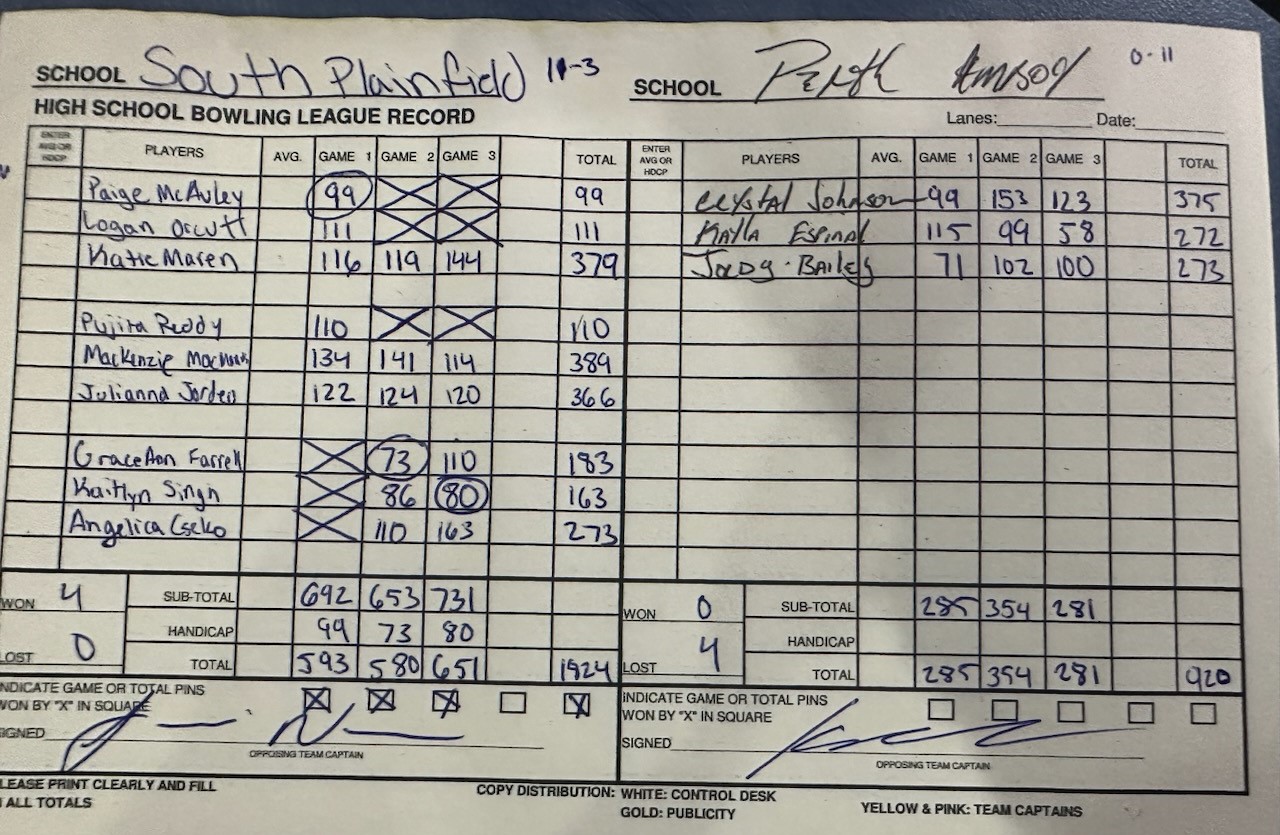 SCHOOL South Plainfield 11-3 SCHOOL Perth Amboy 0-11
HIGH SCHOOL BOWLING LEAGUE RECORD Lanes: Date:
ENTER AVG OR HDCP PLAYERS AVG. GAME 1 GAME 2 GAME 3 TOTAL ENTER AVG OR HDCP PLAYERS AVG. GAME 1 GAME 2 GAME 3 TOTAL
Paige McAuley 99 99 Crystal Johnson 99 153 123 375
Logan Orcutt 111 111 Kayla Espinal 115 99 58 272
Katie Maren 116 119 144 379 Jordy Bailey 71 102 100 273
Pujita Reddy 110 110
Mackenzie 134 141 114 389
Julianna Jorden 122 124 120 366
GraceAnn Farrell 73 110 183
Kaitlyn Singh 86 80 163
Angelica Cseko 110 163 273
WON 4 SUB-TOTAL 692 653 731 WON 0 SUB-TOTAL 285 354 281
HANDICAP 99 73 80 HANDICAP
LOST 0 TOTAL 593 580 651 1824 LOST 4 TOTAL 285 354 281 920
INDICATE GAME OR TOTAL PINS INDICATE GAME OR TOTAL PINS
WON BY "X" IN SQUARE X X X X WON BY "X" IN SQUARE
SIGNED SIGNED
OPPOSING TEAM CAPTAIN OPPOSING TEAM CAPTAIN
LEASE PRINT CLEARLY AND FILL COPY DISTRIBUTION: WHITE: CONTROL DESK YELLOW & PINK: TEAM CAPTAINS
ALL TOTALS GOLD: PUBLICITY